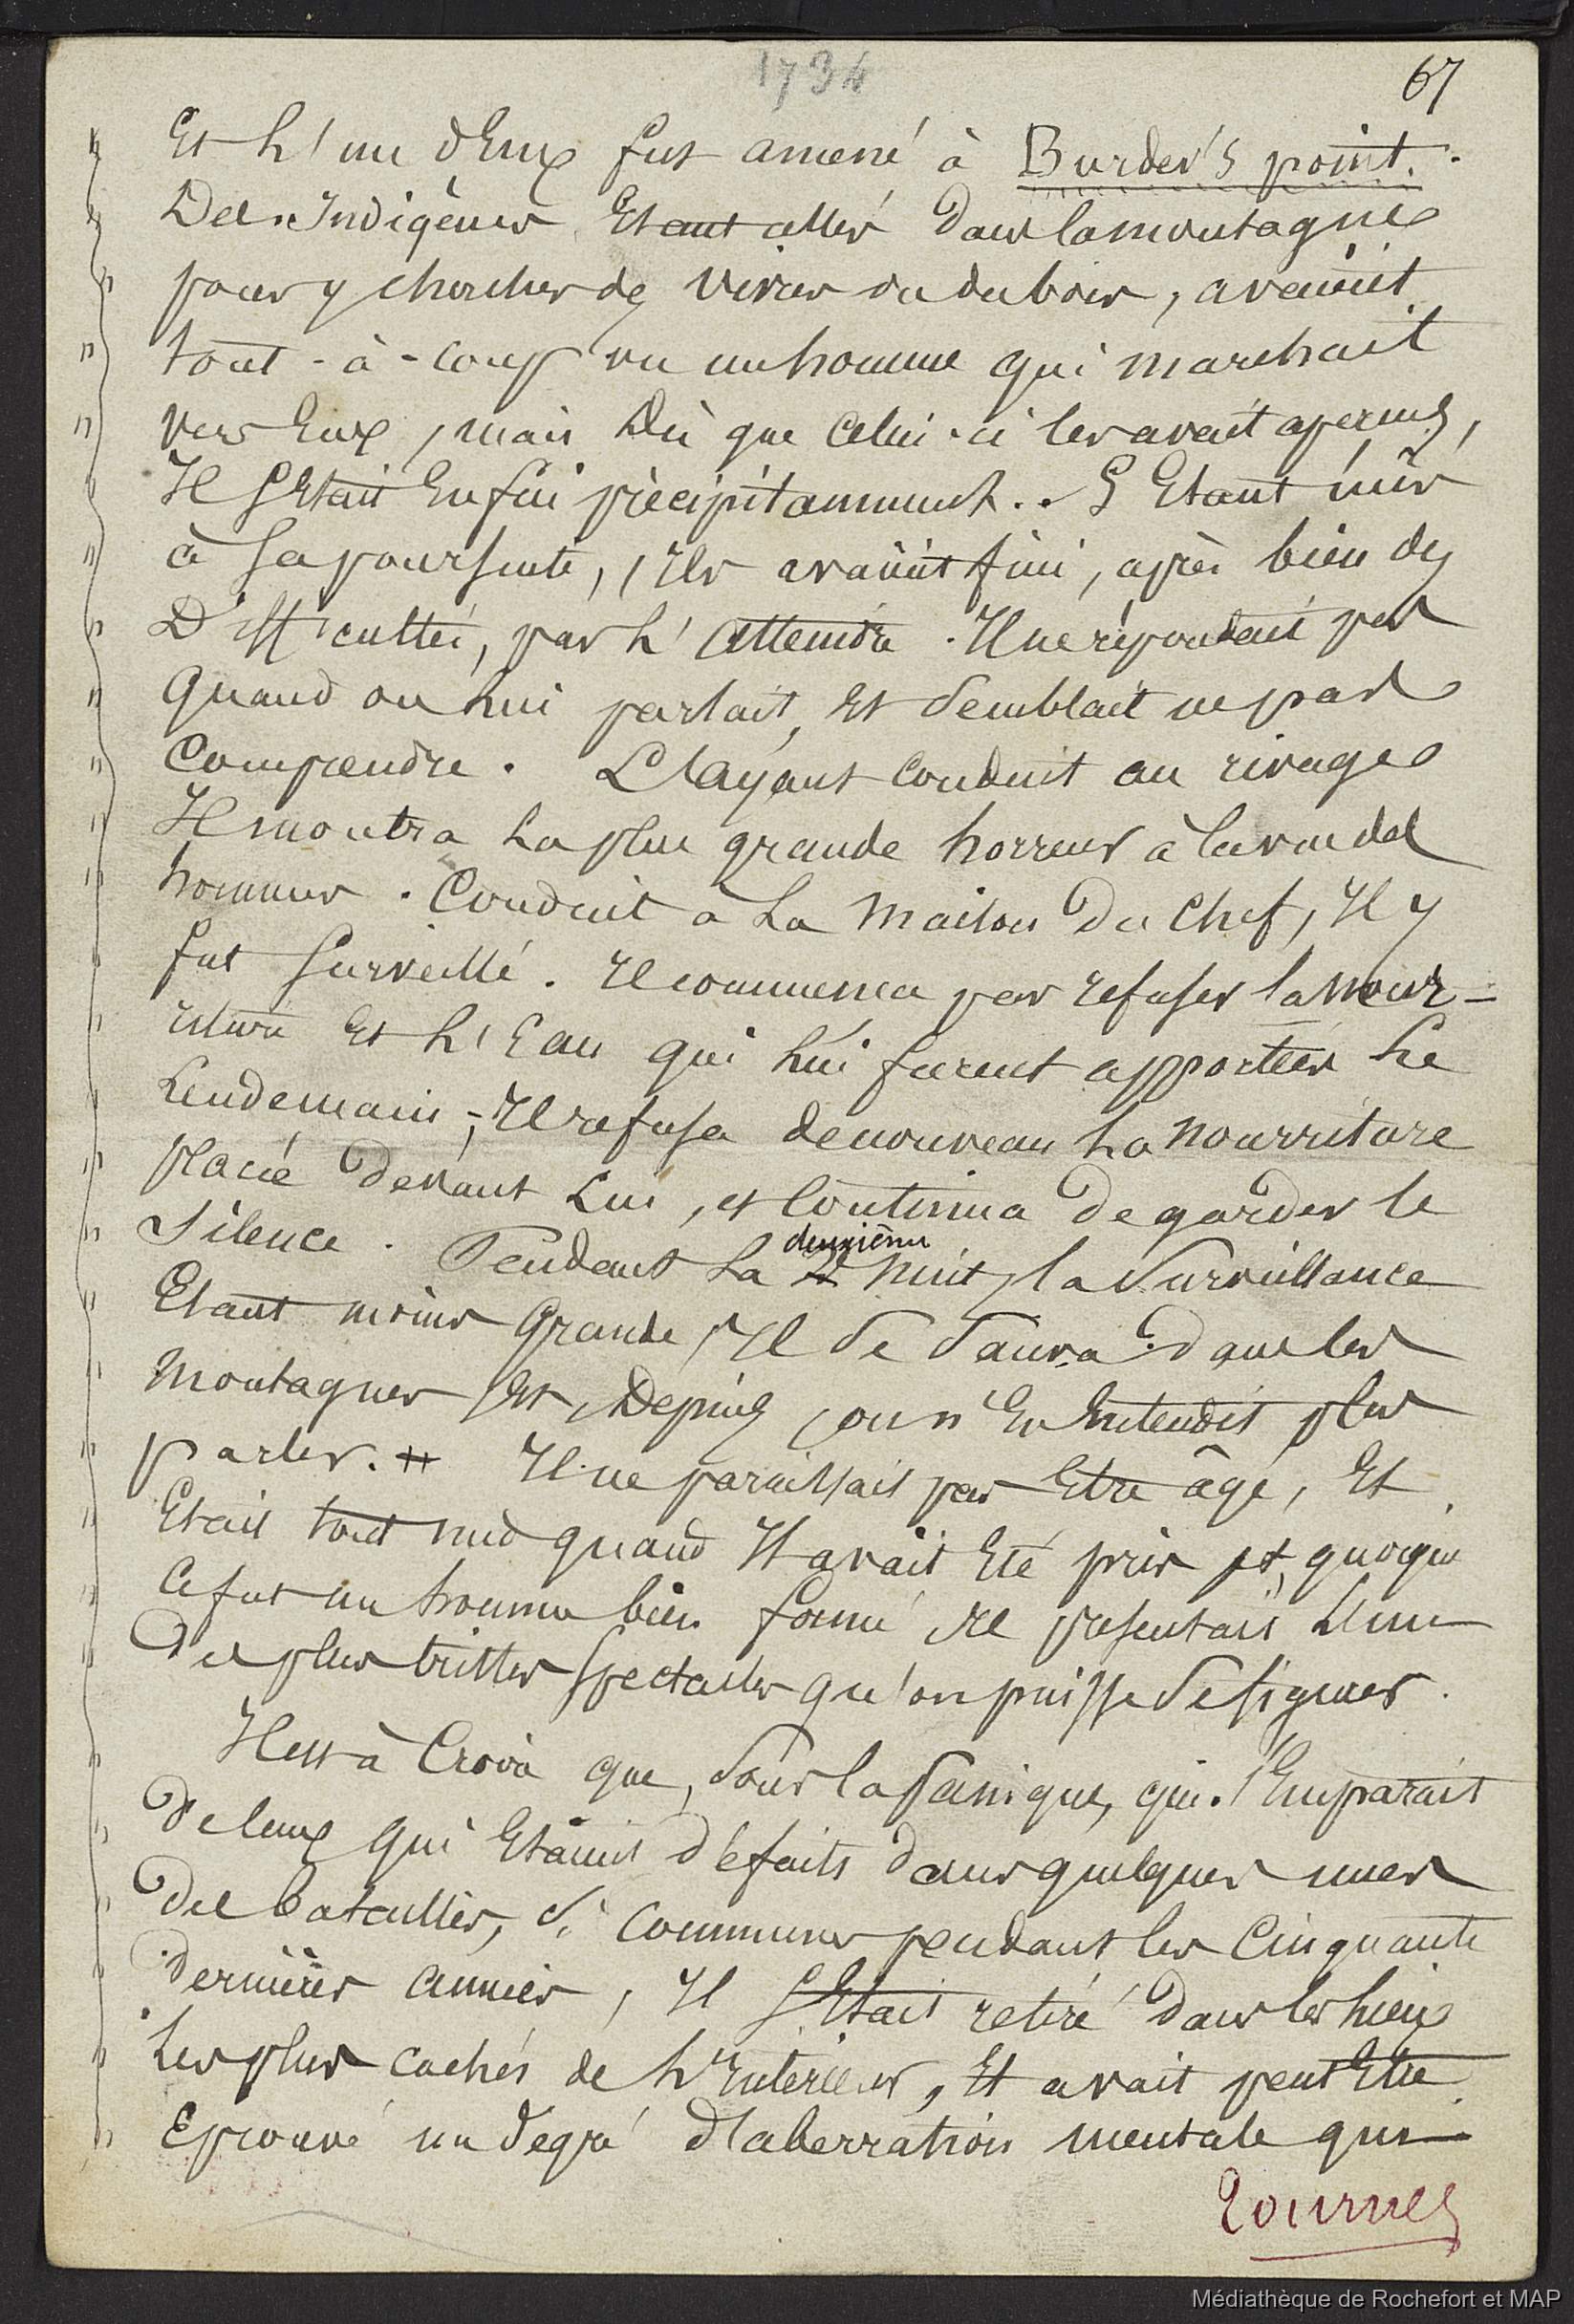 1734
67
Et L'un d'Eux fut amené à Burder's point.
Des Indigènes Etant allés dans la montagne
pour y chercher des vivres ou du bois, avaient
tout-à-coup vu un homme qui marchait
vers Eux, mais Dès que Celui-ci les avait aperçus,
Il s'Etait Enfui précipitamment.. S'Etant mis
à sa poursuite, Ils avaient fini, après bien des
Difficultés, par L'Atteindre. Il ne répondait pas
Quand on Lui parlait, Et semblait ne pas
Comprendre. L'ayant conduit au rivage
Il montra La plus grande horreur à la vue des
hommes. Conduit à La Maison Du Chef, Il y
fut surveillé. Il commença par refuser la nour-
riture Et L'Eau qui Lui furent apportées Le
Lendemain; Il refusa de nouveau La nourriture
placée Devant Lui, et Continua De garder le
silence. Pendant La deuxième nuit, la surveillance
Etant moins Grande, Il se sauva dans les
Montagnes Et, Depuis, on n'En Entendit plus
parler. Il ne paraissait pas Etre âgé, Et
Etait tout nud quand Il avait Eté pris et, quoique
Ce fut un homme bien formé, Il présentait L'un
Des plus tristes spectacles qu'on puisse se figurer.
Il est à Croire que, sous la Panique, qui s'Emparait
De ceux qui Etaient défaits dans quelques unes
Des batailles, si communes pendant les Cinquante
Dernières Années, Il s'Etait retiré Dans les Lieux
Les plus cachés de L'Intérieur, Et avait peut Etre
Eprouvé un degré D'aberration mentale qui
Tournez
Médiathèque de Rochefort et MAP